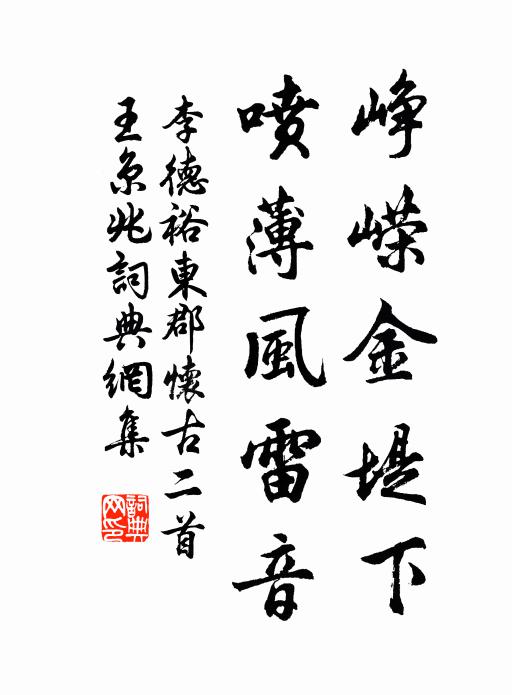 峥嵘金堤下
喷薄風雷音
李德裕東郡懷古二首
王京兆詞典網集
詞典
网印